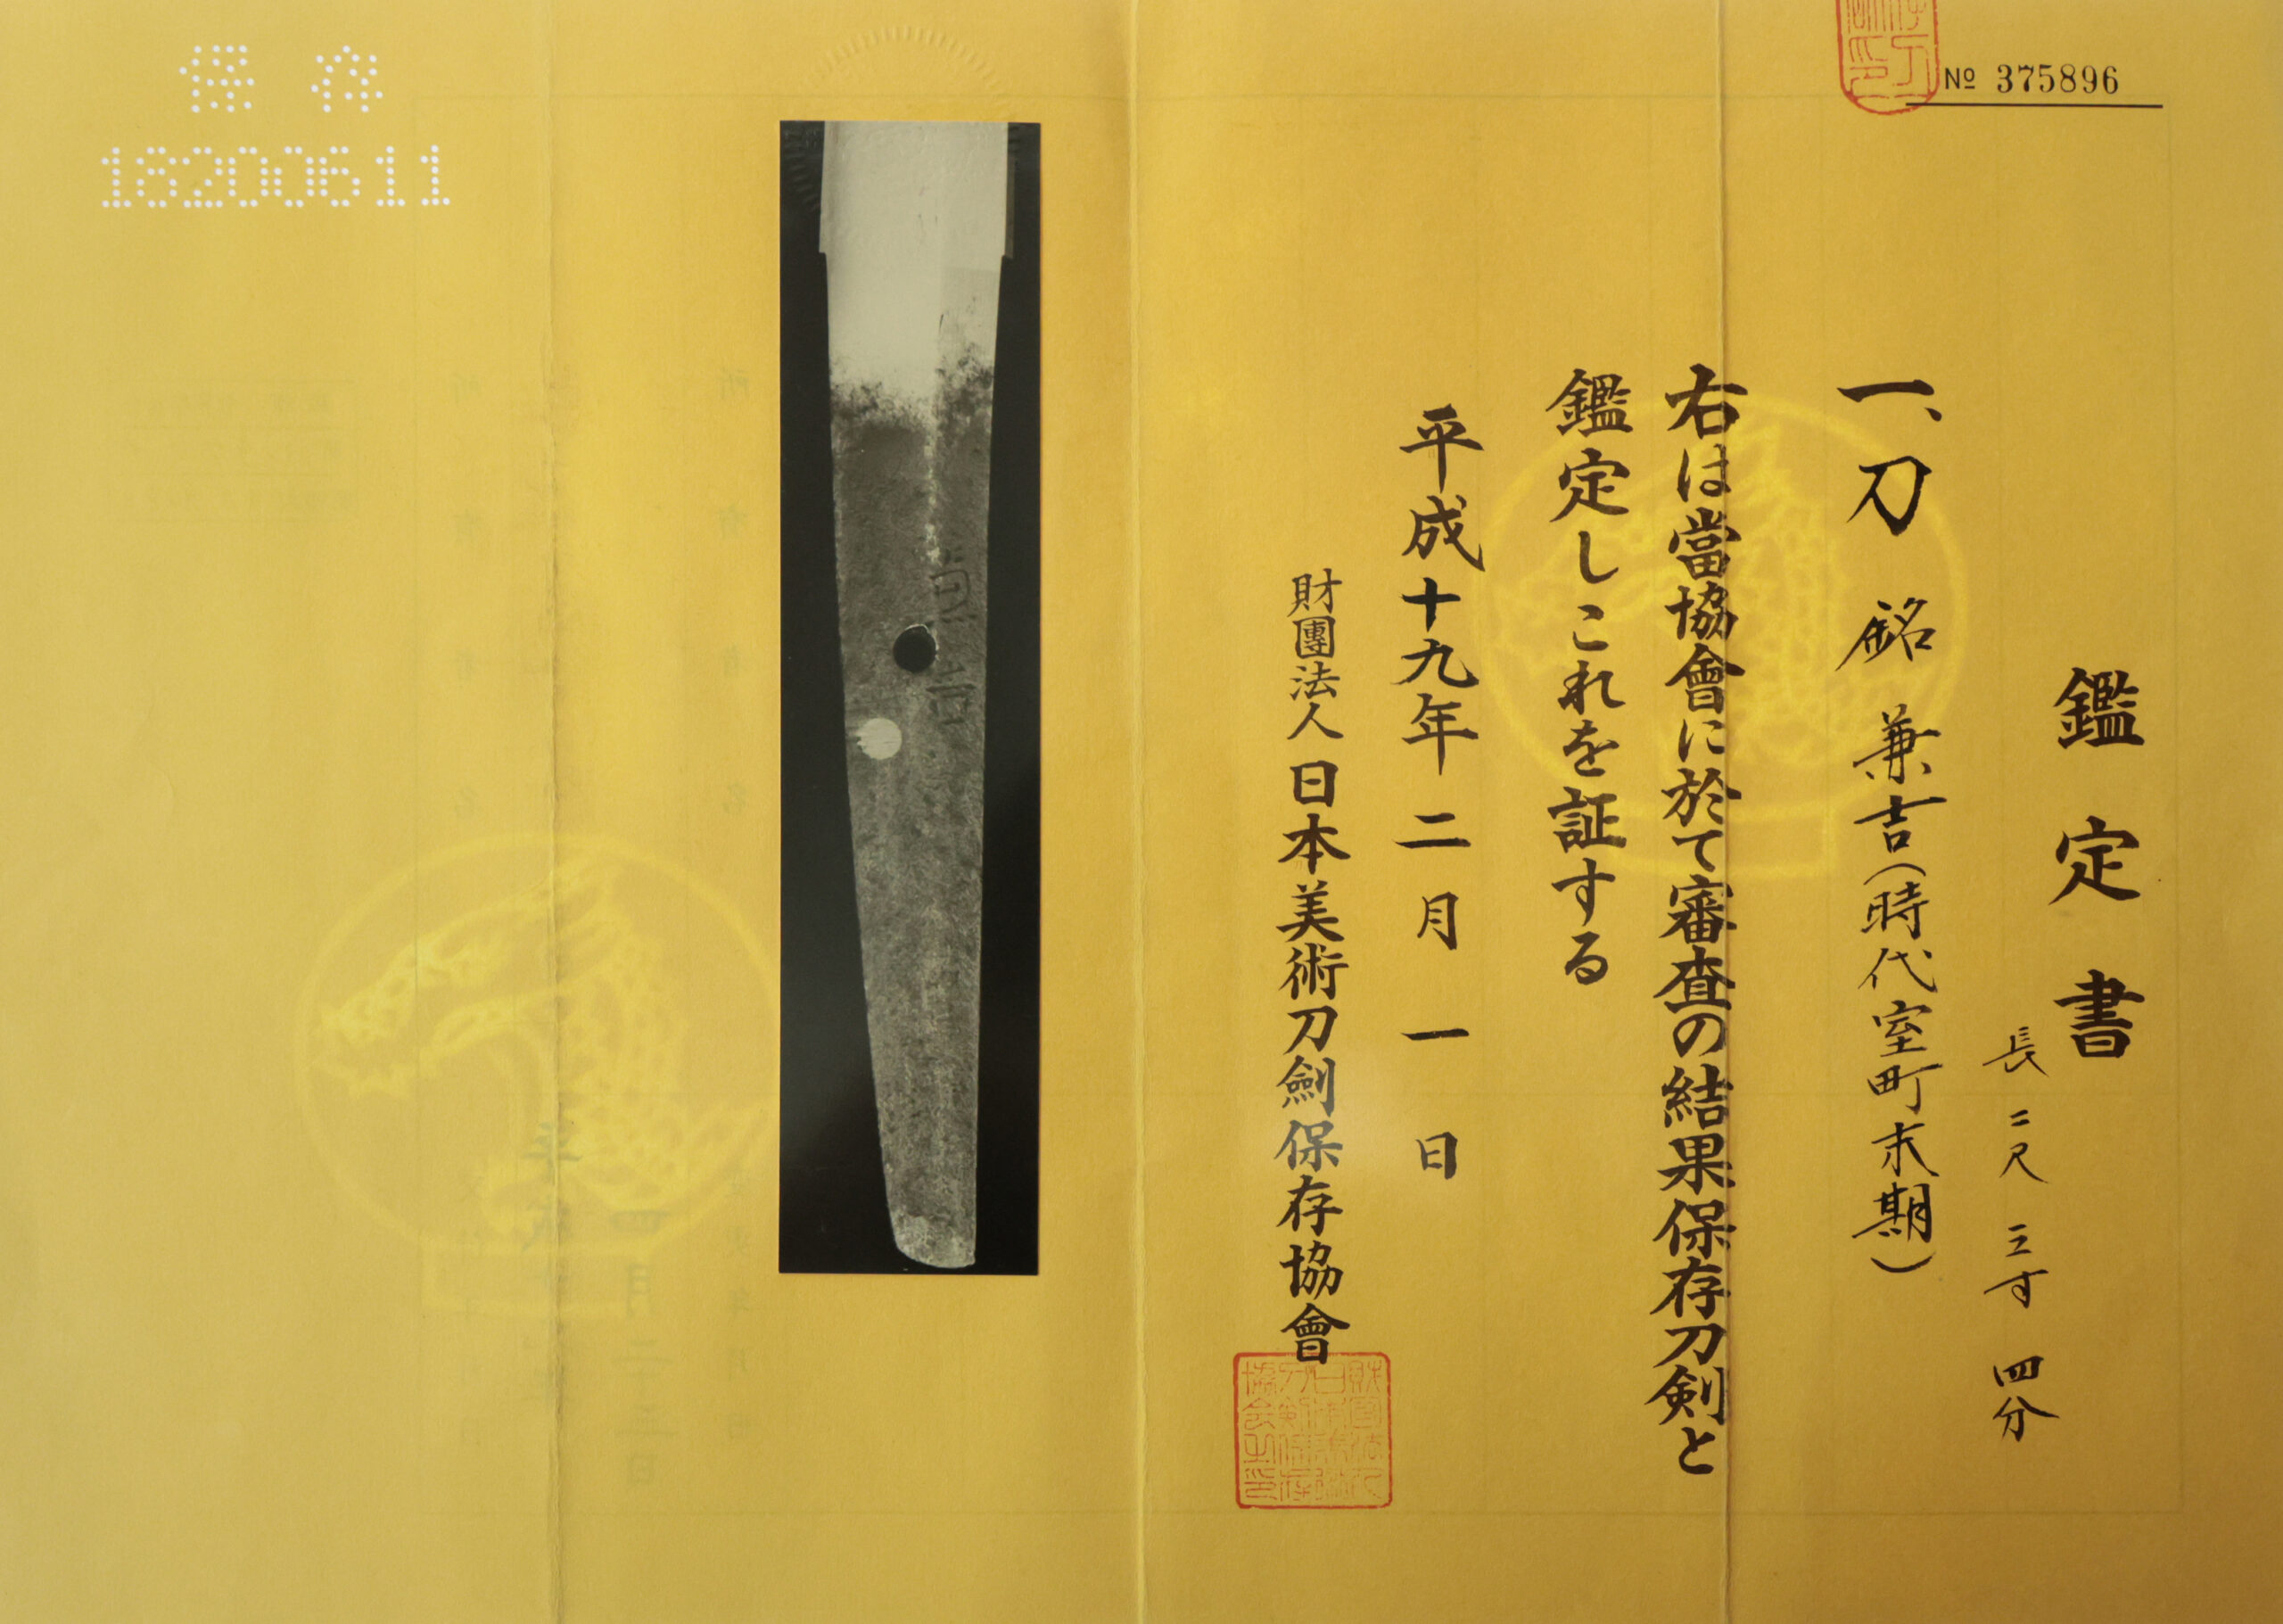 № 375896
鑑定書
長二尺三寸四分
一、刀 銘 兼吉(時代室町末期)
右は當協會に於て審査の結果保存刀剣と
鑑定しこれを証する
平成十九年二月一日
財團法人日本美術刀劍保存協會
兼吉
保存
18200611